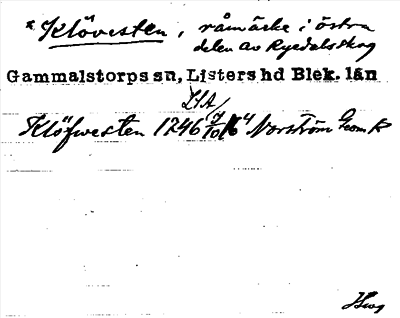 * Klövesten, råmärke i östra
delen av Ryedalsskog
Gammalstorps sn, Listers hd Blek. län
LSA
Klöfwesten 1246 7/10 Norström Geom